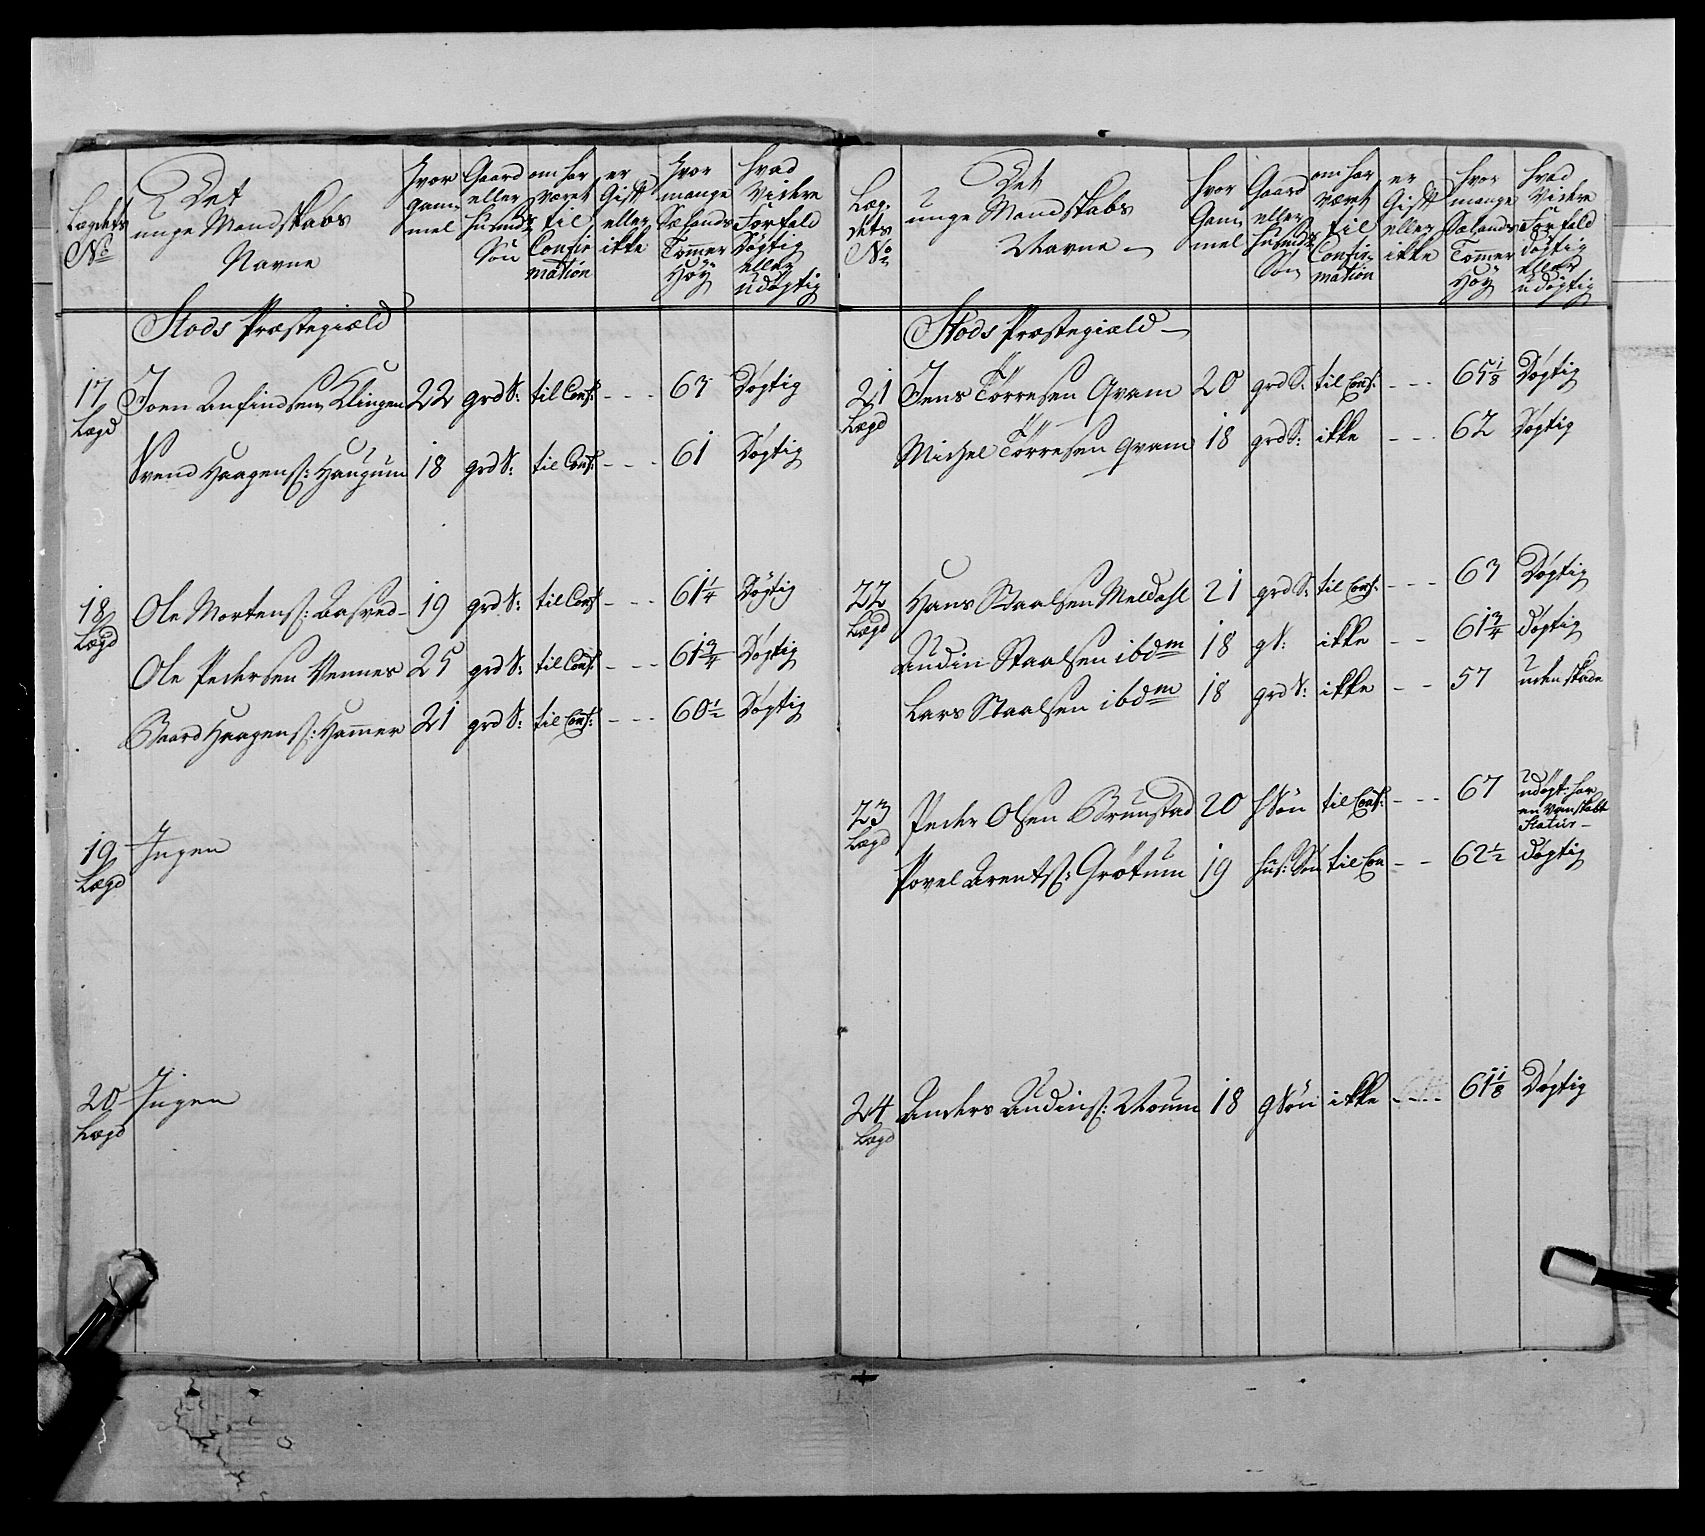 Lægdets No | Det unge Mandskabs Navne | Hvor gammel | Gaard eller Husmds Søn | om har været til Confirmation | er Gift eller ikke | Hvor mange Sælands Tommer Høÿ | Hvad Videre Forfald Døgtig eller udøgtig
Stods Præstegiæld
17 Lægd | Joen Anfindsen Klingen | 22 | grd S: | til Conf: | - - - | 63 | Døgtig
Svend Haagens: Haugum | 18 | grd S: | til Conf: | - - - | 61 | Døgtig
18 Lægd | Ole Mortens: | 19 | grd S: | til Conf | - - - | 61 1/4 | Døgtig
Ole Pedersen Vennes | 25 | grd S: | til Conf: | - - - | 61 3/4 | Døgtig
Baard Haagens: Hammer | 21 | grd S: | til Conf: | - - - | 60 1/2 | Døgtig
19 Lægd | Ingen
20 Lægd | Ingen
Lægdets No | Det unge Mandskabs Navne | Hvor Gammel | Gaard eller Husmds Søn | om har været til Confirmation | er Gift eller ikke | Hvor mange Sælands Tommer Høÿ | Hvad Videre Forfald døgtig eller udøgtig
Stods Præstegiæld
21 Lægd | Jens Torresen Qvam | 20 | grd S: | til Conf: | - - - | 65 1/8 | Døgtig
Michel Torresen Qvam | 18 | grd S: | ikke | - - - | 62 | Døgtig
22 Lægd | Hans Staalsen Meldahl | 21 | grd S: | til Conf: | - - - | 63 | Døgtig
Audin Staalsen ibdm | 18 | g S: | ikke | - - | 61 3/4 | døgtig
Lars Staalsen ibdm | 18 | grd S: | ikke | - - | 57 | uden skade
23 Lægd | Peder Olsen Brunstad | 20 | H Søn | til Conf: | - - - | 67 | udøgt: har en Vanskabt Statur
Povel Arents: Grøtum | 19 | Hus: Søn | til Con | - - | 62 1/2 | døgtig
24 Lægd | Anders Audins: | 18 | g Søn | ikke | - - - | 61 1/8 | Døgtig